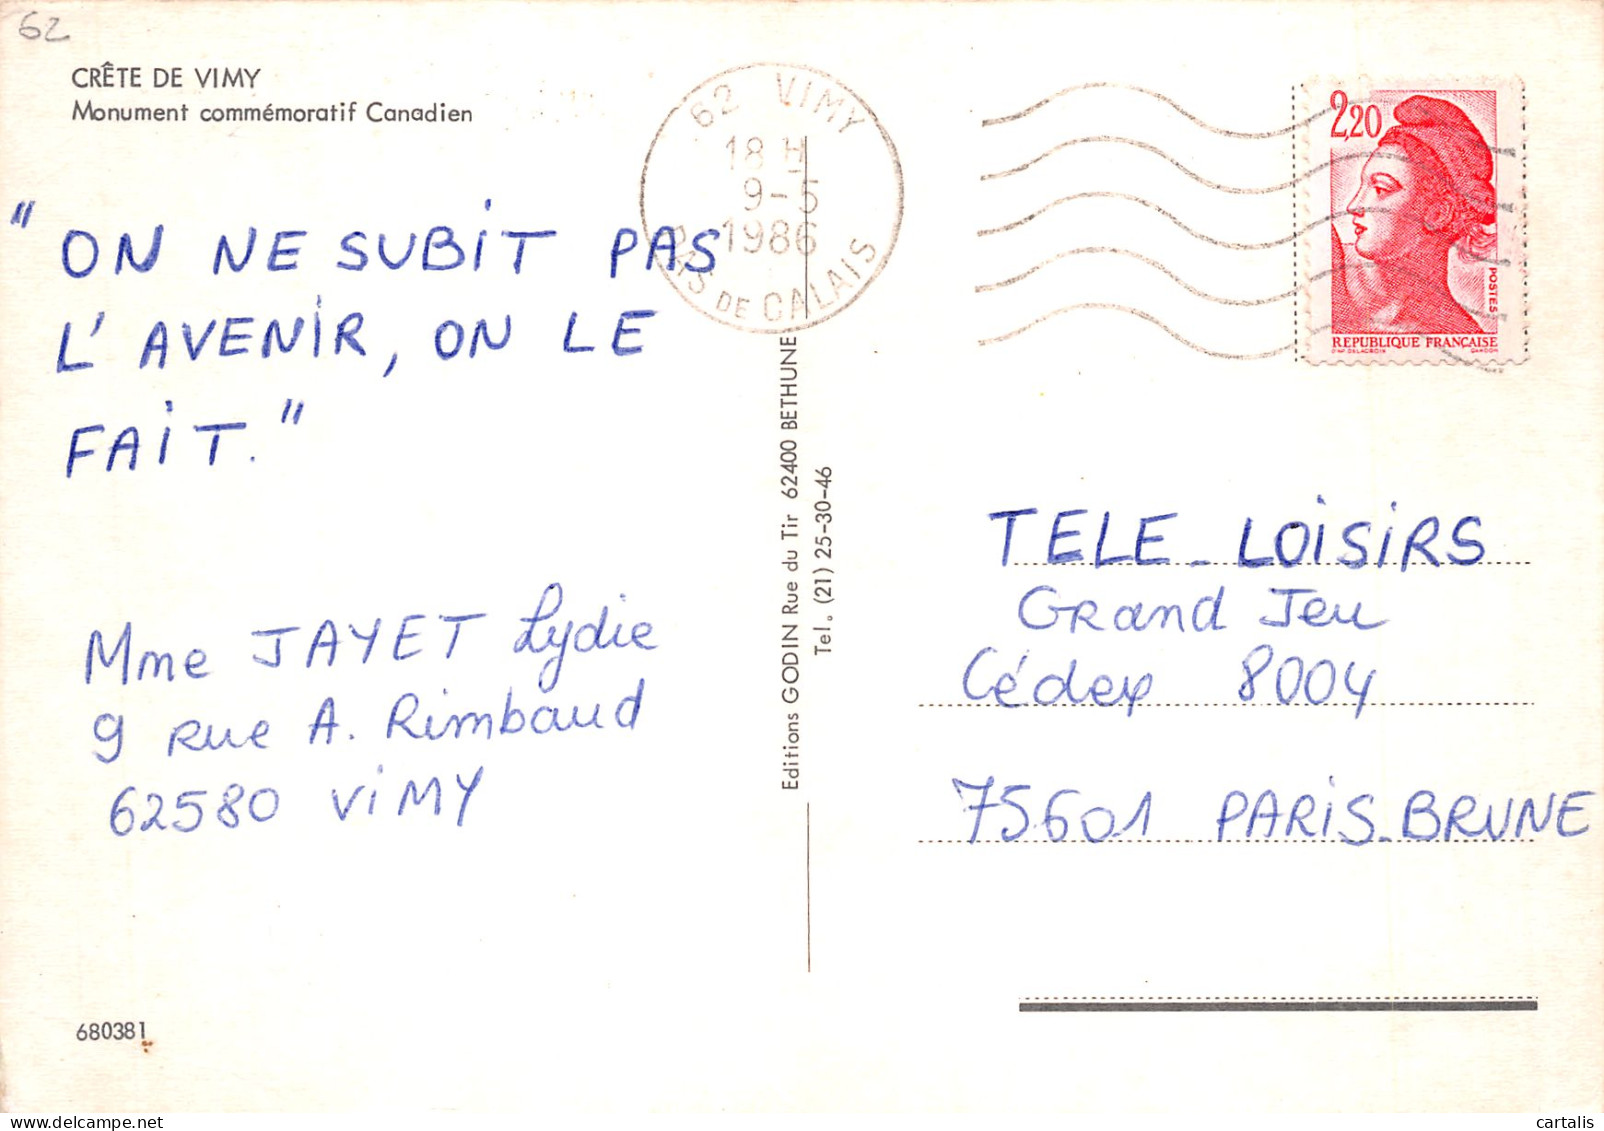 62
CRÊTE DE VIMY
Monument commémoratif Canadien
"ON NE SUBIT PAS
L'AVENIR, ON LE
FAIT."
Mme JAYET Lydie
9 rue A. Rimbaud
62580 VIMY
680381
62 VIMY
18 H
9-5
1986
PAS DE CALAIS
Editions GODIN Rue du Tir 62400 BETHUNE
Tel. (21) 25-30-46
2,20
POSTES
REPUBLIQUE FRANÇAISE
D'AP. DELACROIX GANDON
TELE-LOISIRS
Grand Jeu
Cédex 8004
75601 PARIS-BRUNE
cartalis